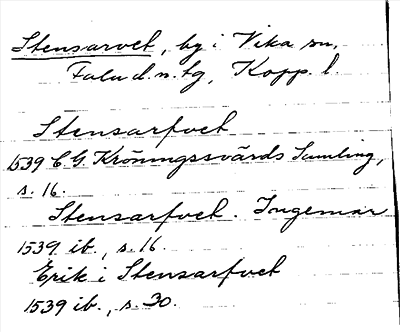 Stensarvet, by i Vika sn,
Falu d.n. tg, Kopp. l.
Stensarfvet
1539 C. G. Kröningssvärds Samling,
s. 16.
Stensarfvet. Ingemar
1539 ib., s. 16.
Erik i Stensarfvet
1539 ib., s. 30.